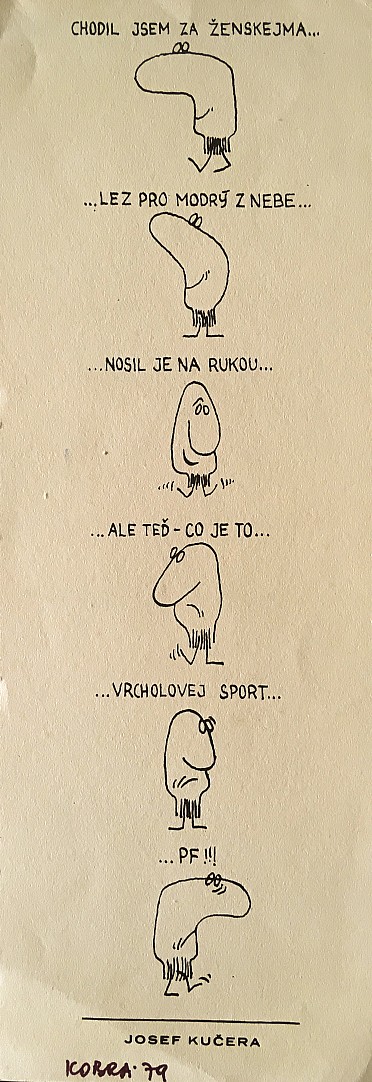 CHODIL JSEM ZA ŽENSKEJMA...
...LEZ PRO MODRÝ Z NEBE...
...NOSIL JE NA RUKOU...
...ALE TEĎ - CO JE TO...
...VRCHOLOVEJ SPORT...
...PF!!!
JOSEF KUČERA
KOBRA·79